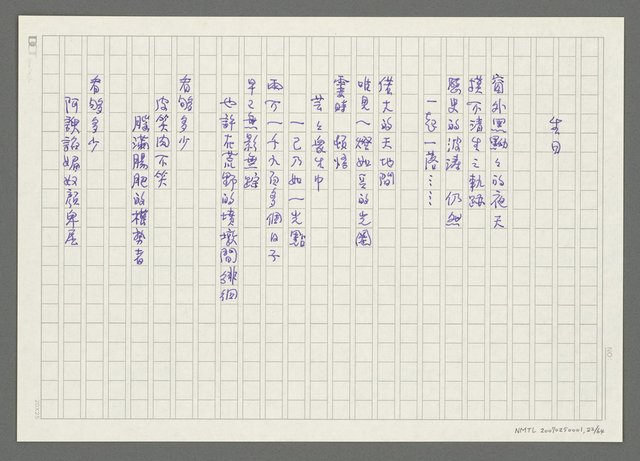 生日
窗外黑黝々的夜天
摸不清生之軌跡
歷史的波濤 仍然
一起一落……
偌大的天地間
唯見一燈如豆的光圈
霎時 頓悟
芸々衆生中
一己乃如一光點
兩万一千九百多個日子
早已無影無踪
也許在荒野的墳墩間徘徊
有夠多少
皮笑肉不笑
腦滿腸肥的權勢者
有夠多少
阿諛諂媚奴顏卑屈
NMTL 20090250001, 22/64